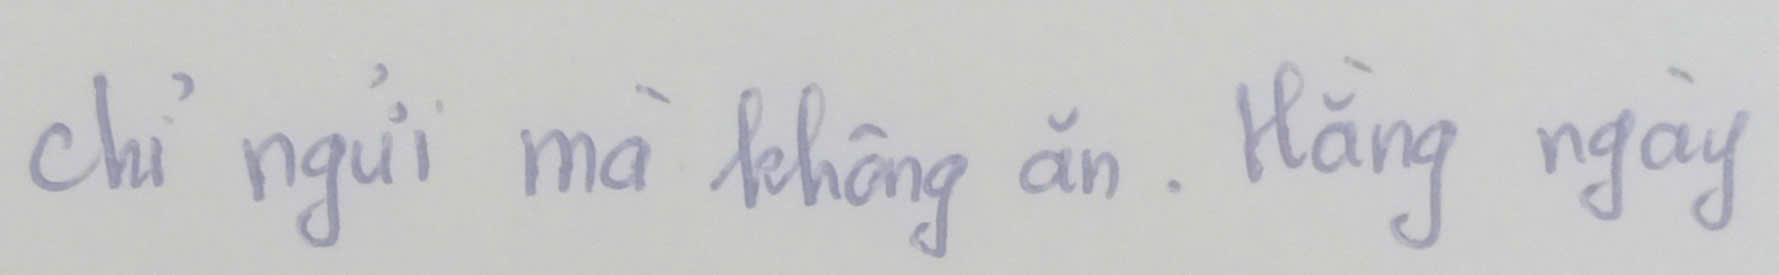 chỉ ngửi mà không ăn. Hằng ngày